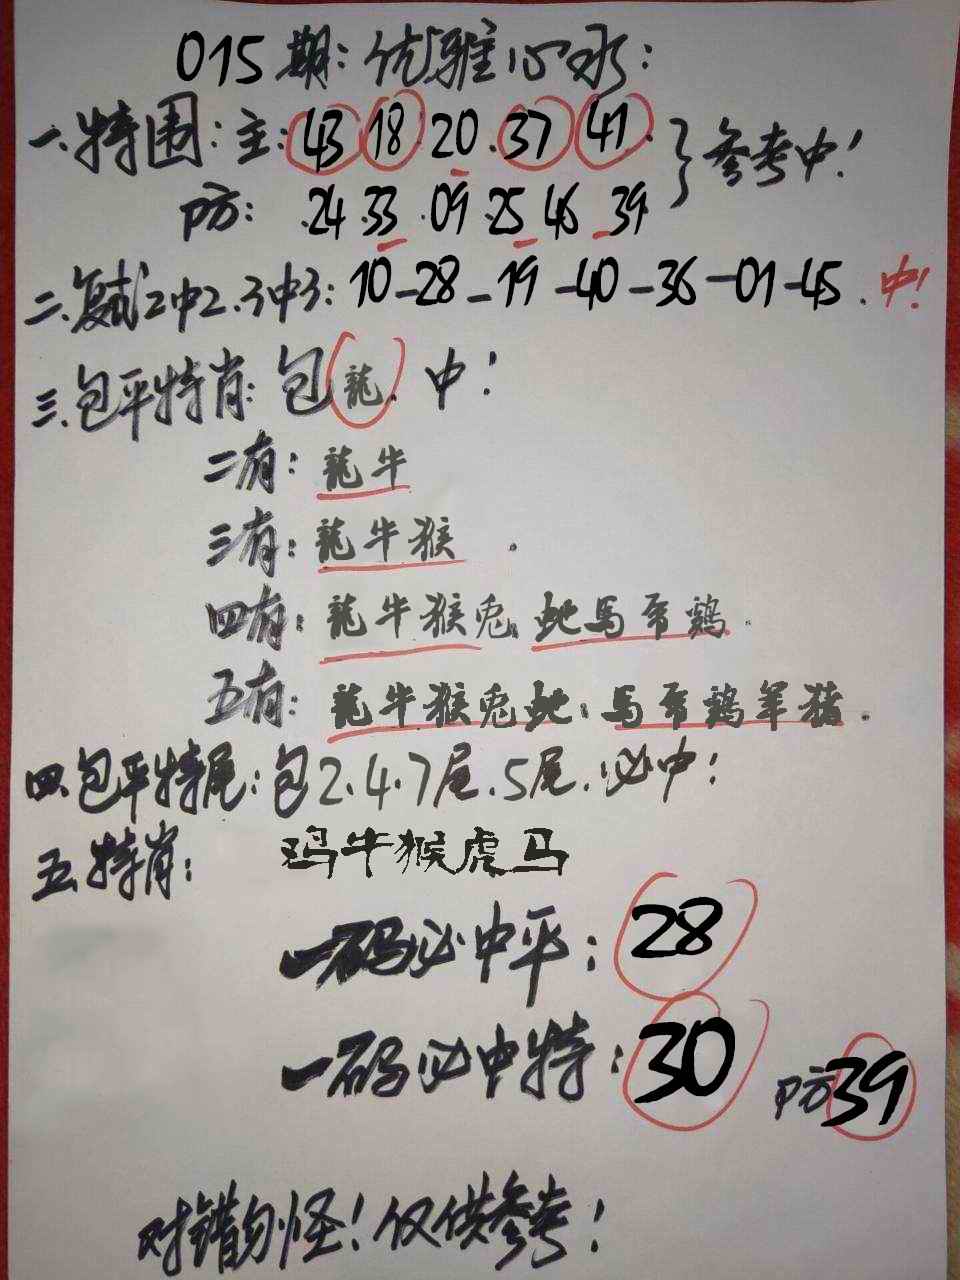 015期：优雅心水：
一.特围：主：43 18 20.37 41. 参考中！
防：.24.33.09.25 46.39
二.复式2中2.3中3：10-28-19-40-36-01-45.中！
三.包平特肖：包龍.中！
二有：龍牛
三有：龍牛猴.
四有：龍牛猴兎.蛇馬吊鷄.
五有：龍牛猴兎蛇.馬吊鷄羊猪.
四.包平特尾：包2.4.7尾.5尾.必中！
五.特肖：鸡牛猴虎马
一码必中平：28
一码必中特：30 防39
对错勿怪！仅供参考！